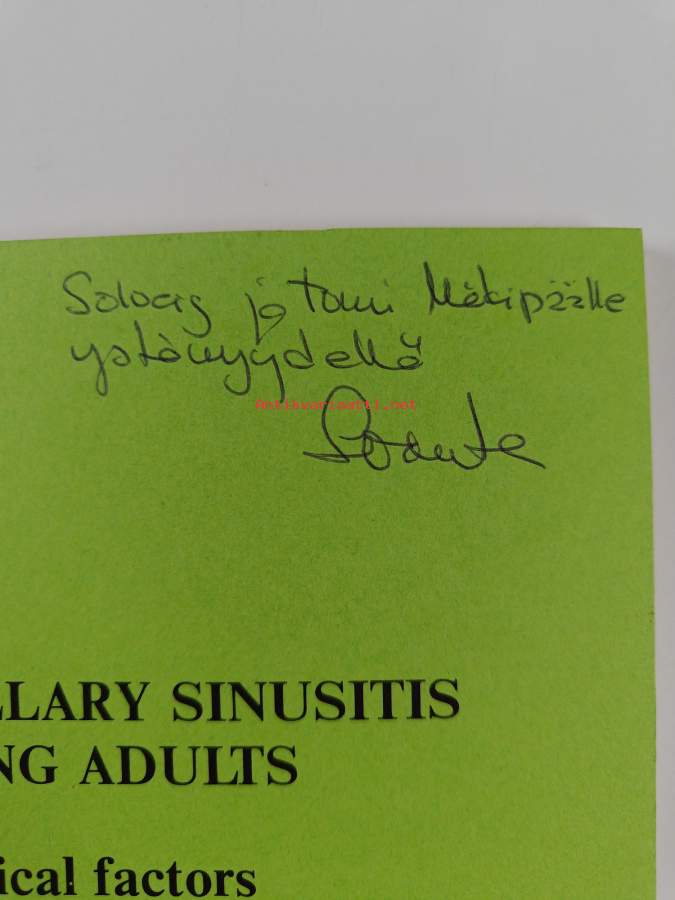 Solveig ja Tomi Mäkipäälle
ystävyydellä
Antikvariaatti.net
LLARY SINUSITIS
NG ADULTS
ical factors